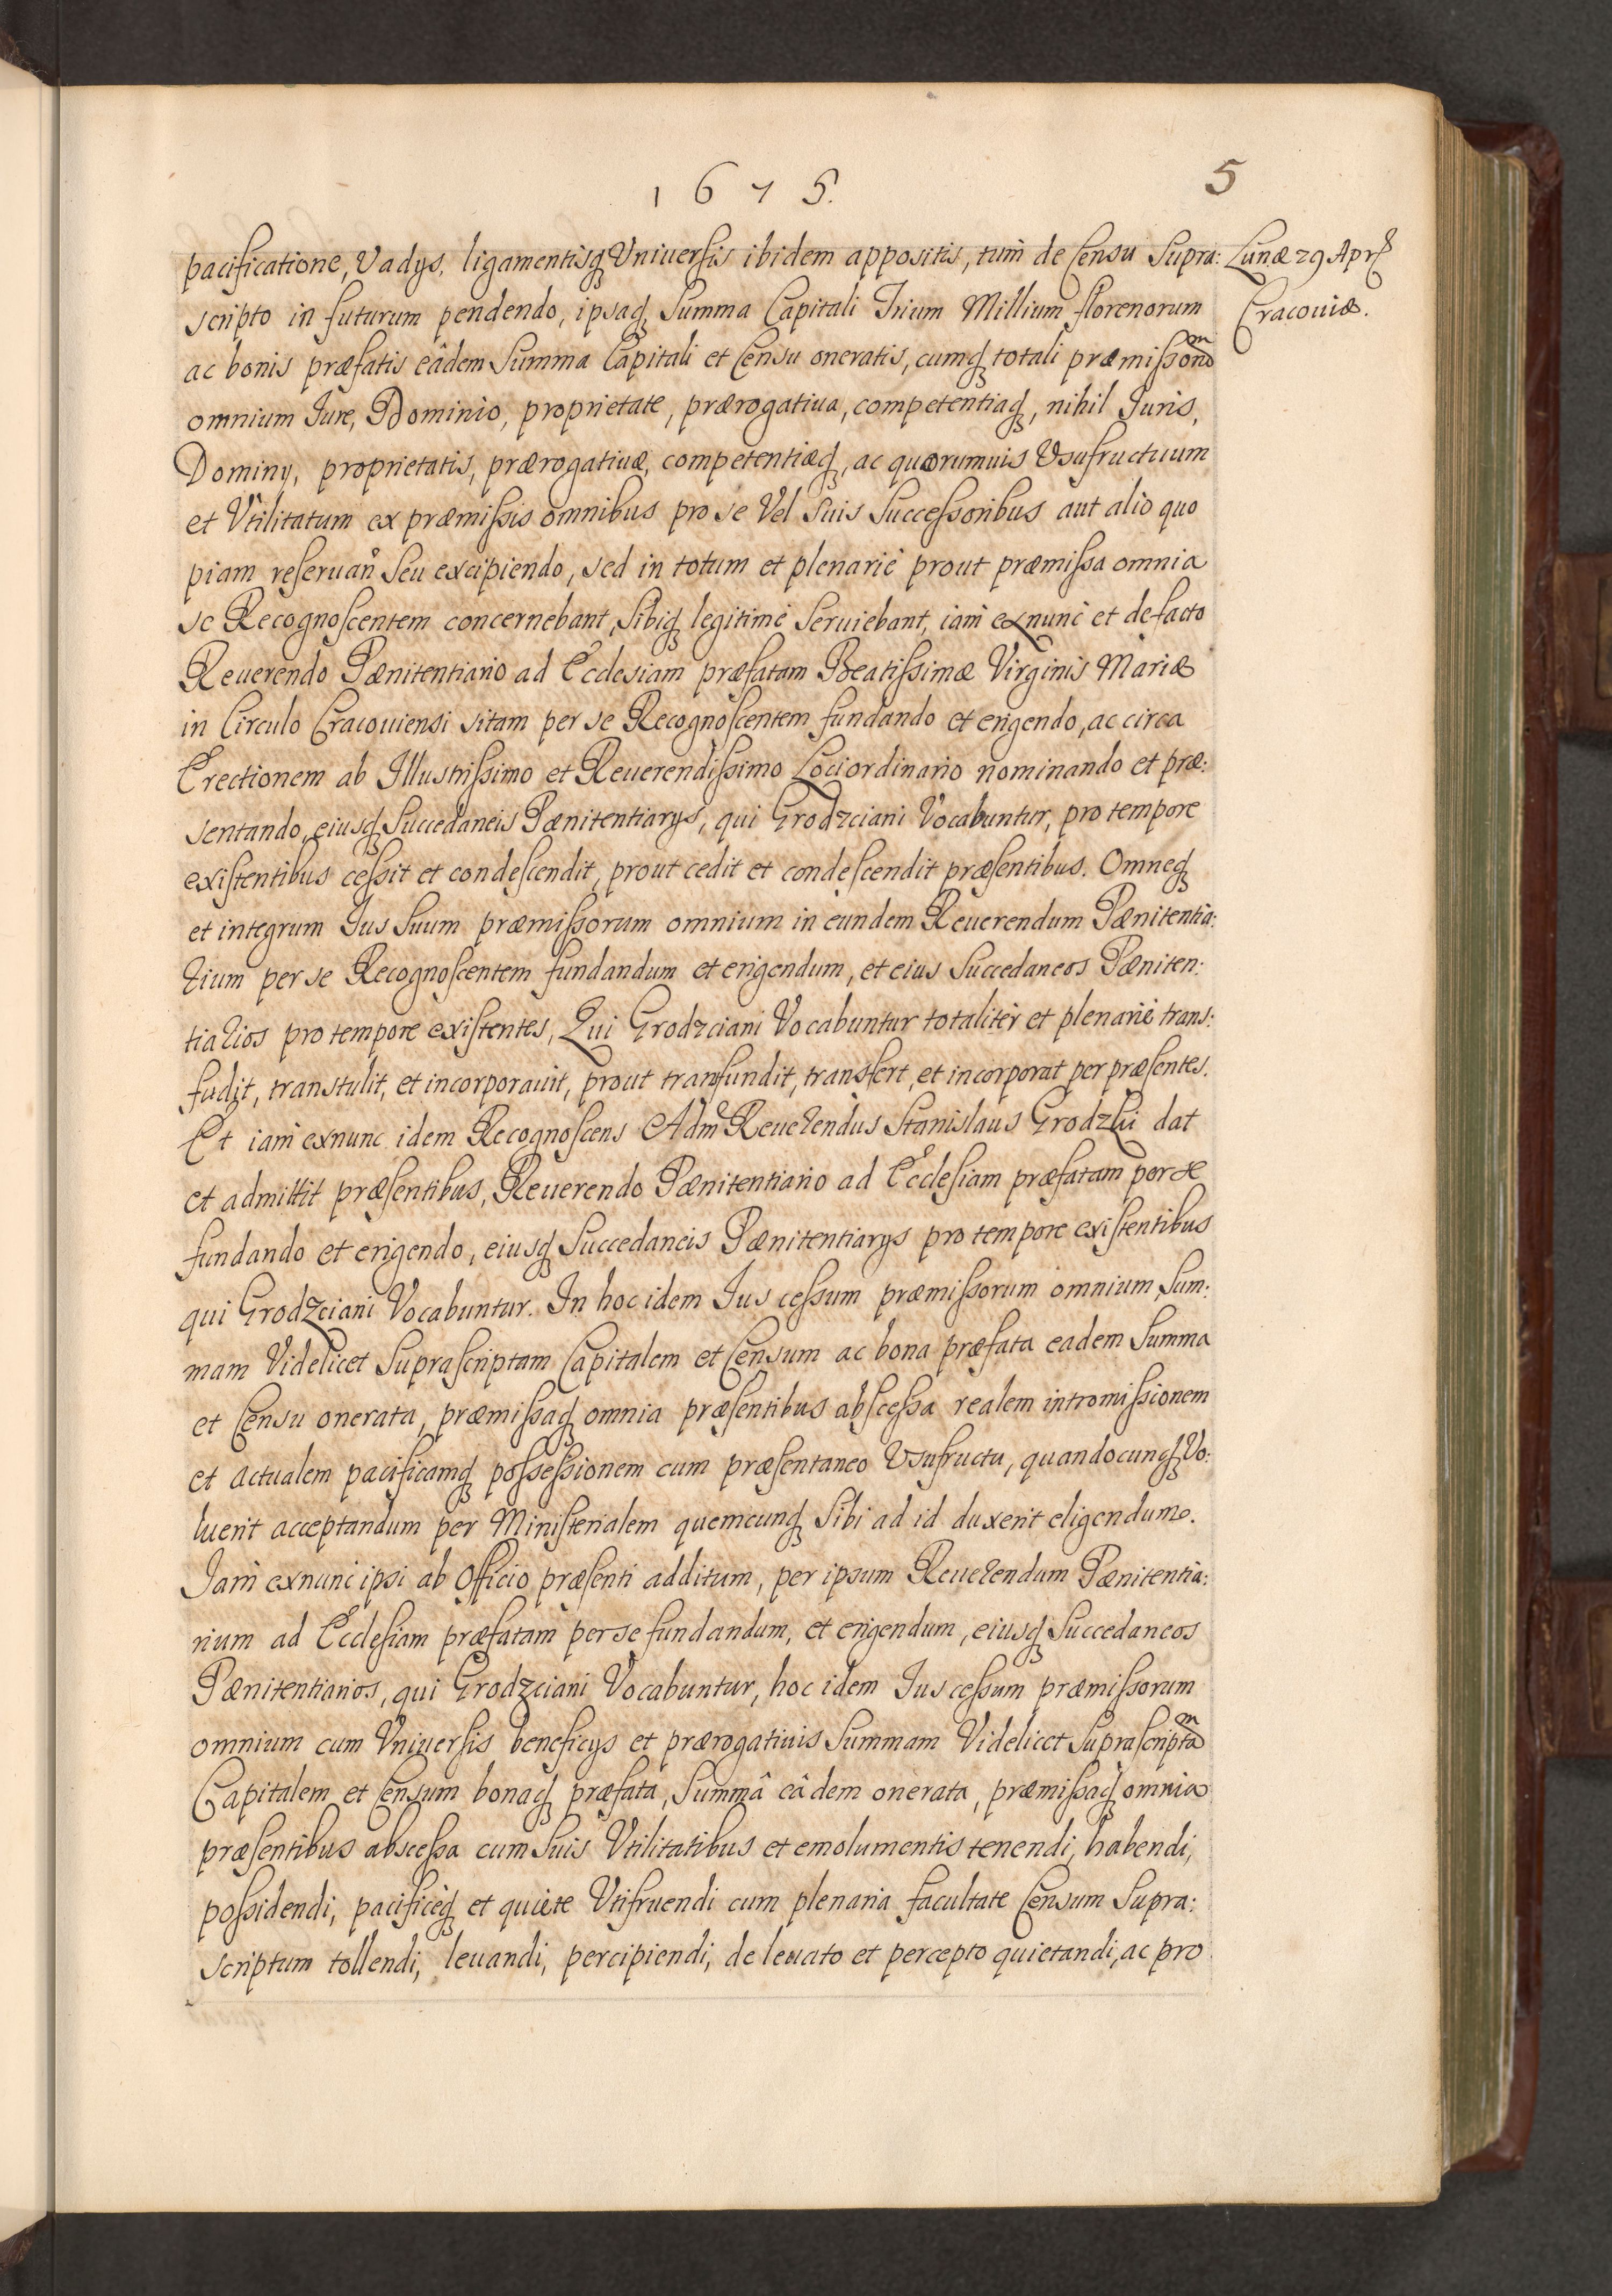 1675.
5
pacificatione, Vadys, ligamentisq Vniuersis ibidem appositis, tum de Censu Supra:
scripto in futurum pendendo, ipsaq Summa Capitali Trium Millium florenorum
ac bonis præfatis eâdem Summa Capitali et Censu oneratis, cumq totali præmissorũ
omnium Jure, Dominio, proprietate, prærogatiua, competentiaq, nihil Juris,
Dominy, proprietatis, prærogatiuæ, competentiæq, ac quorumuis Vsufructuum
et Vtilitatum ex præmissis omnibus pro se Vel Suis Successoribus aut alio quo
piam reseruañ Seu excipiendo, sed in totum et plenariè prout præmissa omnia
se Recognoscentem concernebant, Sibiq legitimè Seruiebant, iam exnunc et defacto
Reuerendo Pænitentiario ad Ecclesiam præfatam Beatissimæ Virginis Mariæ
in Circulo Cracouiensi sitam per se Recognoscentem fundando et erigendo, ac circa
Erectionem ab Illustrissimo et Reuerendissimo Lociordinario nominando et præ:
sentando, eiusq Succedaneis Pænitentiarys, qui Grodzciani Vocabuntur, pro tempore
existentibus cessit et condescendit, prout cedit et condescendit præsentibus. Omneq
et integrum Jus Suum præmissorum omnium in eundem Reuerendum Pænitentia:
rium per se Recognoscentem fundandum et erigendum, et eius Succedaneos Pæniten:
tiarios pro tempore existentes, Qui Grodzciani Vocabuntur totalitèr et plenariè trans:
fudit, transtulit, et incorporauit, prout transfundit, transfert, et incorporat per præsentes.
Et iam exnunc idem Recognoscens Adm Reuerendus Stanislaus Grodzki dat
et admittit præsentibus, Reuerendo Pænitentiario ad Ecclesiam præfatam per se
fundando et erigendo, eiusq Succedaneis Pænitentiarys pro tempore existentibus
qui Grodzciani Vocabuntur. In hoc idem Jus cessum præmissorum omnium, Sum:
mam Videlicet Suprascriptam Capitalem et Censum ac bona præfata eadem Summa
et Censu onerata, præmissaq omnia præsentibus abscessa realem intromissionem
et actualem pacificamq possessionem cum præsentaneo Vsufructu, quandocunq Vo:
luerit acceptandum per Ministerialem quemcunq Sibi ad id duxerit eligendum.
Jam exnunc ipsi ab Officio præsenti additum, per ipsum Reuerendum Pænitentia:
rium ad Ecclesiam præfatam per se fundandum, et erigendum, eiusq Succedaneos
Pænitentiarios, qui Grodzciani Vocabuntur, hoc idem Jus cessum præmissorum
omnium cum Vniuersis beneficys et prærogatiuis Summam Videlicet Suprascriptã
Capitalem et Censum bonaq præfata, Summâ eâdem onerata, præmissaq omnia
præsentibus abscessa cum Suis Vtilitatibus et emolumentis tenendi, habendi,
possidendi, pacificèq et quiete Vtifruendi cum plenaria facultate Censum Supra:
scriptum tollendi, leuandi, percipiendi, de leuato et percepto quietandi, ac pro
Lunæ 29 Apr
Cracouiæ.